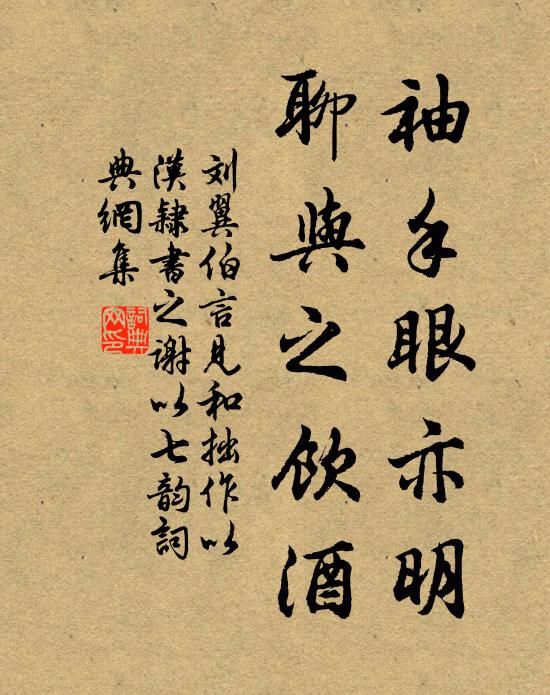 袖手眼亦明
聊與之飲酒
刘翼伯言見和拙作以
漢隸書之謝以七韵詞
典網集
詞典网印